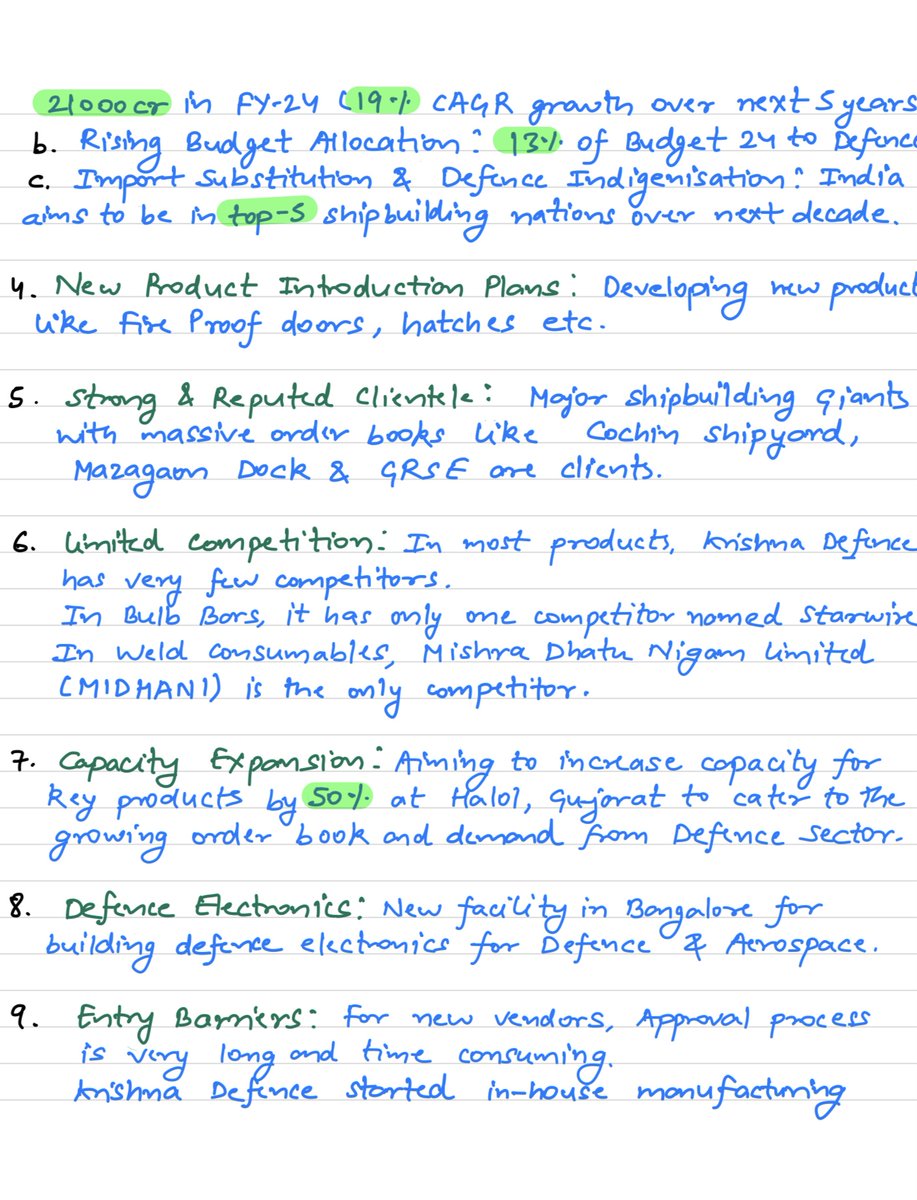 21000 cr in FY-24 (19% CAGR growth over next 5 years
b. Rising Budget Allocation: 13% of Budget 24 to Defenc
c. Import Substitution & Defence Indigenisation: India
aims to be in top-5 shipbuilding nations over next decade.
4. New Product Introduction Plans: Developing new product
like Fire Proof doors, hatches etc.
5. Strong & Reputed Clientele: Major shipbuilding Giants
with massive order books like Cochin Shipyard,
Mazagaon Dock & GRSE are clients.
6. Limited Competition: In most products, Krishna Defence
has very few competitors.
In Bulb Bars, it has only one competitor named Starwire
In Weld Consumables, Mishra Dhatu Nigam Limited
(MIDHANI) is the only competitor.
7. Capacity Expansion: Aiming to increase capacity for
key products by 50% at Halol, Gujarat to cater to the
growing order book and demand from Defence sector.
8. Defence Electronics: New facility in Bangalore for
building defence electronics for Defence & Aerospace.
9. Entry Barriers: For new vendors, Approval process
is very long and time consuming.
Krishna Defence started in-house manufacturing